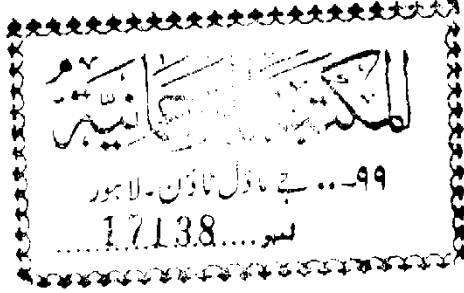 المکتبۃ الرحمانیۃ
۹۹... جے ماڈل ٹاؤن۔ لاہور
نمبر....17138......